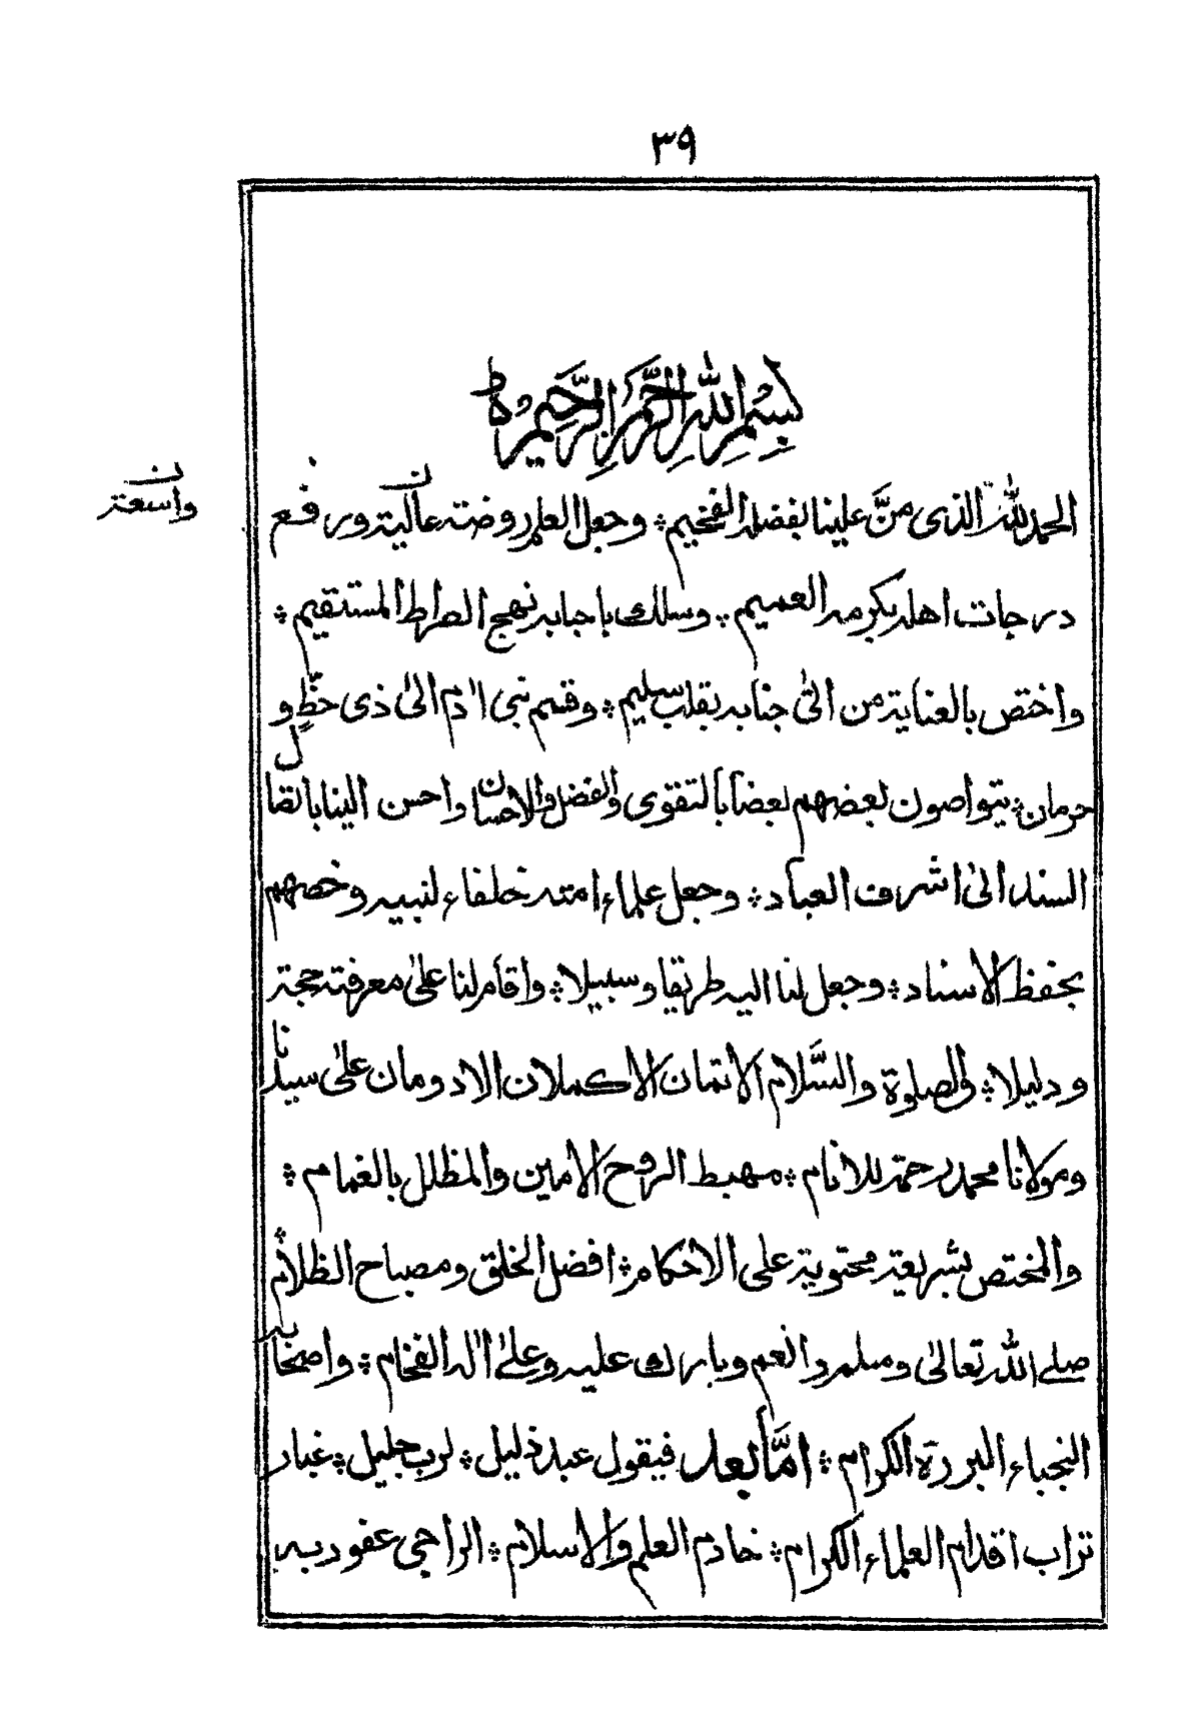 ٣٩
بسم الله الرحمن الرحيم ه
الحمد لله الذى منَّ علينا بفضله الفخيم ؞ وجعل العلم روضته عالية ورفع
ن
واسعة
درجات اهله بكرمه العميم ؞ وسلك باجابه نهج الصراط المستقيم ؞
واختص بالعناية من اتى جنابه بقلب سليم ؞ وقسم بنى اٰدم الىٰ ذى حظٍّ و
حرمان ؞ يتواصون بعضهم بعضا بالتقوى والفضل والاحسان واحسن الينا باتصال
السند الىٰ اشرف العباد ؞ وجعل علماء امته خلفاء لنبيه وخصهم
بحفظ الاسناد ؞ وجعل لنا اليه طريقا وسبيلا ؞ واقام لنا علىٰ معرفته حجة
ودليلا ؞ والصلوة والسَّلام الاتمان الاكملان الادومان علىٰ سيدنا
ومولانا محمد رحمة للانام ؞ مهبط الروح الامين والمظلل بالغمام ؞
والمختص بشريعة محتوية على الاحكام ؞ افضل الخلق ومصباح الظلام ؞
صلى الله تعالىٰ وسلم وانعم وبارك عليه وعلىٰ اٰله الفخام ؞ واصحابه
النجباء البررة الكرام ؞ امَّا بعد فيقول عبد ذليل ؞ لرب جليل ؞ غبار
تراب اقدام العلماء الكرام ؞ خادم العلم والاسلام ؞ الراجى عفو ربه